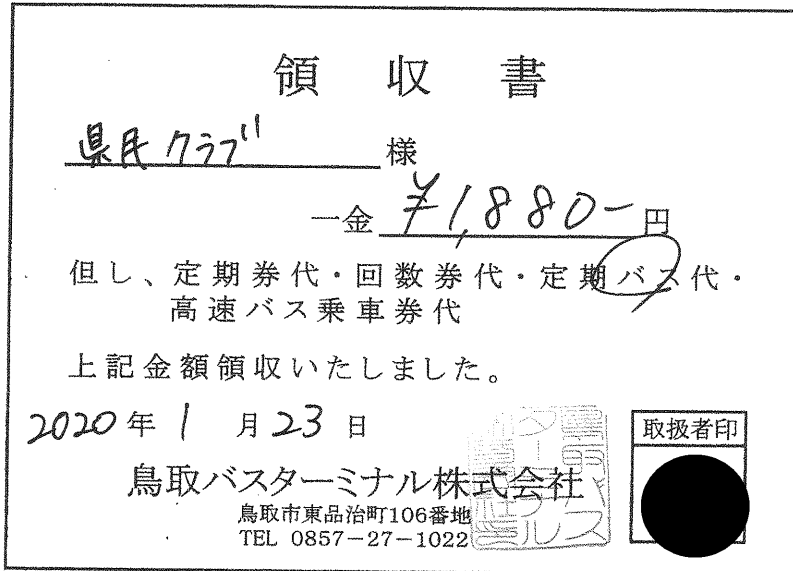 領収書
県民クラブ 様
一金 ¥1,880- 円
但し、定期券代・回数券代・定期バス代・
高速バス乗車券代
上記金額領収いたしました。
2020年1月23日
取扱者印
鳥取バスターミナル株式会社
鳥取市東品治町106番地
TEL 0857-27-1022